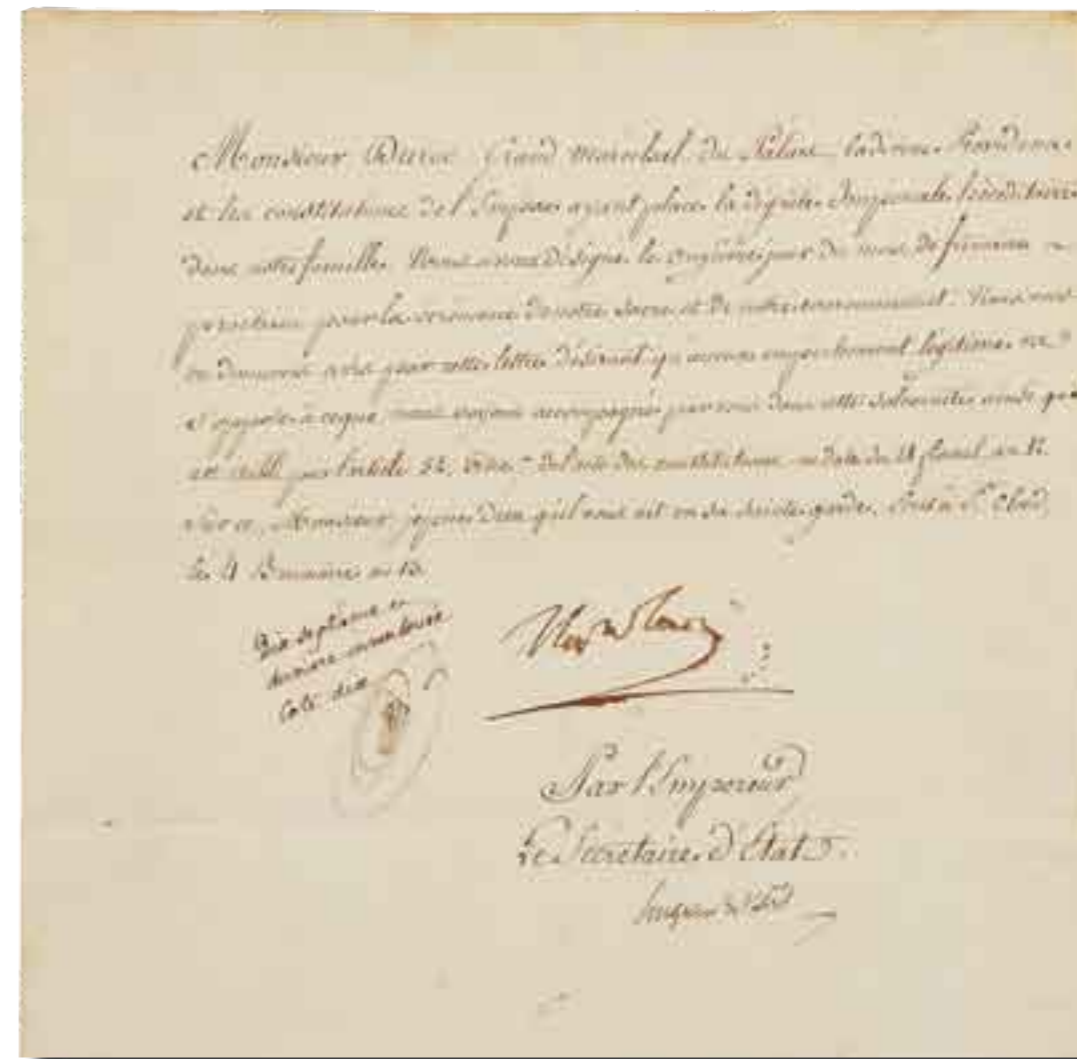 Monsieur Duroc Grand maréchal du Palais, la divine Providence
et les constitutions de l'Empire ayant placé la dignité Impériale héréditaire
dans notre famille. Nous avons désigné le onzième jour du mois de frimaire
prochain pour la cérémonie de notre Sacre et de notre couronnement. Nous vous
en donnons avis par cette lettre désirant qu'aucun empêchement légitime ne
s'oppose à ce que nous soyons accompagné par vous dans cette solennité ainsi que
par l'article 52, de l'acte des constitutions en date du 28 floréal an 12.
Sur ce, Monsieur, je prie Dieu qu'il vous ait en sa sainte garde. Ecrit à St Cloud,
le 4 Brumaire an 13.
Dix septième et
dernière inventoriée
Cote dix
Napoleon
Par l'Empereur
Le Secrétaire d'Etat